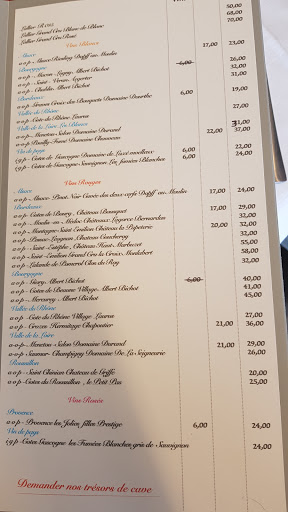 Lallier R.015 50,00
Lallier Grand Cru Blanc de Blanc 68,00
Lallier Grand Cru Rosé 70,00
Vins Blancs
Alsace
a o p - Alsace Riesling Dopff au Moulin 17,00 23,00
Bourgogne
a o p - Macon - Lugny, Albert Bichot 6,00 26,00
a o p - St Véran, Argentier 32,00
a o p - Chablis, Albert Bichot 31,00
Bordeaux
a o p - Graves Croix des Bouquets Domaine Dourthe 6,00 19,00
Vallée du Rhône
a o p - Cote du Rhône Laurus 27,00
Vallée de la Loire Les Blancs 31,00
a o p - Menetou-Salon Domaine Durand 22,00 37,00
a o p - Pouilly Fumé Domaine Chauveau
Vin de pays 6,00 22,00
i g p - Cotes de Gascogne Domaine de Laxé moelleux 6,00 24,00
i g p - Cotes de Gascogne Sauvignon Les fumées Blanches
Vins Rouges
Alsace
a o p - Alsace - Pinot Noir Cuvée des deux cerfs Dopff au Moulin 17,00 24,00
Bordeaux
a o p - Cotes de Bourg, Château Bousquet 17,00 29,00
a o p - Moulis en Médoc Châteaux Lagorce Bernardas 32,00
a o p - Montagne Saint Emilion Château la Papeterie 20,00 32,00
a o p - Pessac-Léognan Château Coucheroy 32,00
a o p - Saint-Estèphe, Château Haut-Marbuzet 55,00
a o p - Saint-Emilion Grand Cru la Chapelle 58,00
a o p - Lalande de Pomerol Clos du Roy 32,00
Bourgogne
a o p - Givry, Albert Bichot 6,00 40,00
a o p - Cotes de Beaune Village Albert Bichot 41,00
a o p - Mercurey, Albert Bichot 45,00
Vallée du Rhône
a o p - Cote du Rhône Village Laurus 27,00
a o p - Crozes Hermitage Chapoutier 21,00 36,00
Valle de la Loire
a o p - Menetou-Salon Domaine Durand 21,00 29,00
a o p - Saumur-Champigny Domaine De La Seigneurie 26,00
Roussillon
a o p - Saint Chinian Chateau de Griffe 20,00
a o p - Cotes du Roussillon, le Petit Pas 25,00
Vins Rosés
Provence
a o p - Provence les Jolies filles Prestige 6,00 24,00
Vin de pays
i g p - Cotes Gascogne les Fumées Blanches gris de Sauvignon 24,00
Demander nos trésors de cave